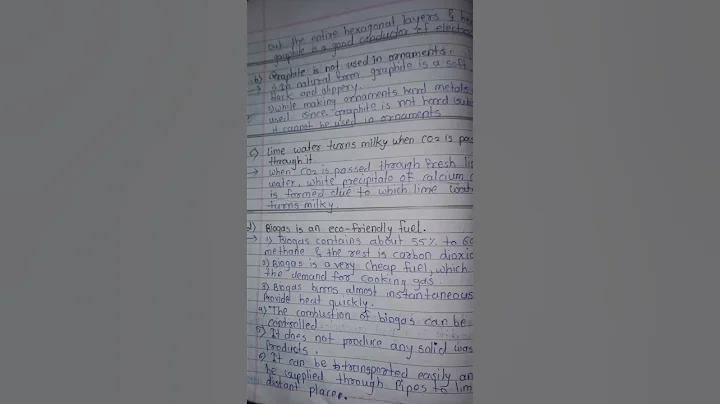 out the entire hexagonal layers & he
graphite is a good conductor of electri
b) Graphite is not used in ornaments.
→ 1) In natural form graphite is a soft
black and slippery.
2) while making ornaments hard metals
used since graphite is not hard subs
it cannot be used in ornaments
c) lime water turns milky when CO2 is pas
through it
→ when CO2 is passed through fresh li
water, white precipitate of calcium c
is formed due to which lime wat
turns milky.
d) Biogas is an eco-friendly fuel.
→ 1) Biogas contains about 55% to 60
methane & the rest is carbon dioxid
2) Biogas is a very cheap fuel, which
the demand for cooking gas.
3) Biogas burns almost instantaneous
Provide heat quickly.
4) The combustion of biogas can be
controlled
5) It does not produce any solid was
Products.
6) It can be transported easily an
be supplied through Pipes to lim
distant places.